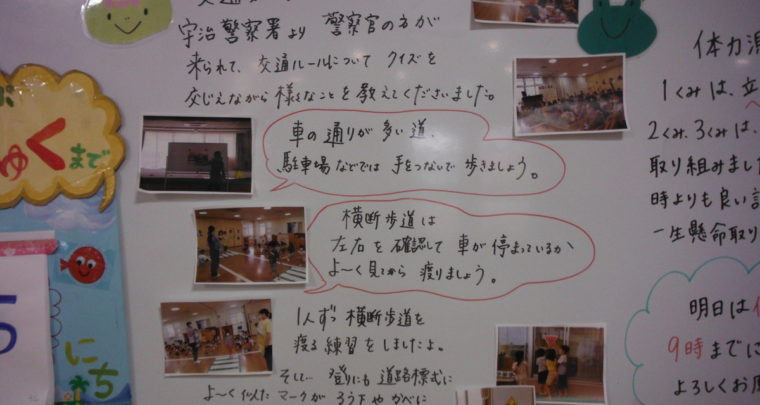 宇治警察署より 警察官の方が
来られて、交通ルールについて クイズを
交じえながら 様々なことを 教えてくださいました。
車の通りが多い道、
駐車場などでは 手をつないで 歩きましょう。
横断歩道は
左右を確認して 車が停まっているか
よ〜く見てから 渡りましょう。
1人ずつ 横断歩道を
渡る練習をしましたよ。
そして… 道路標式に
よ〜く似た マークが ろう下や かべに
まで
にち
体力測
1くみは、立
2くみ、3くみは、
取り組みまし
時よりも良い記
一生懸命取り
明日は
9時までに
よろしくお